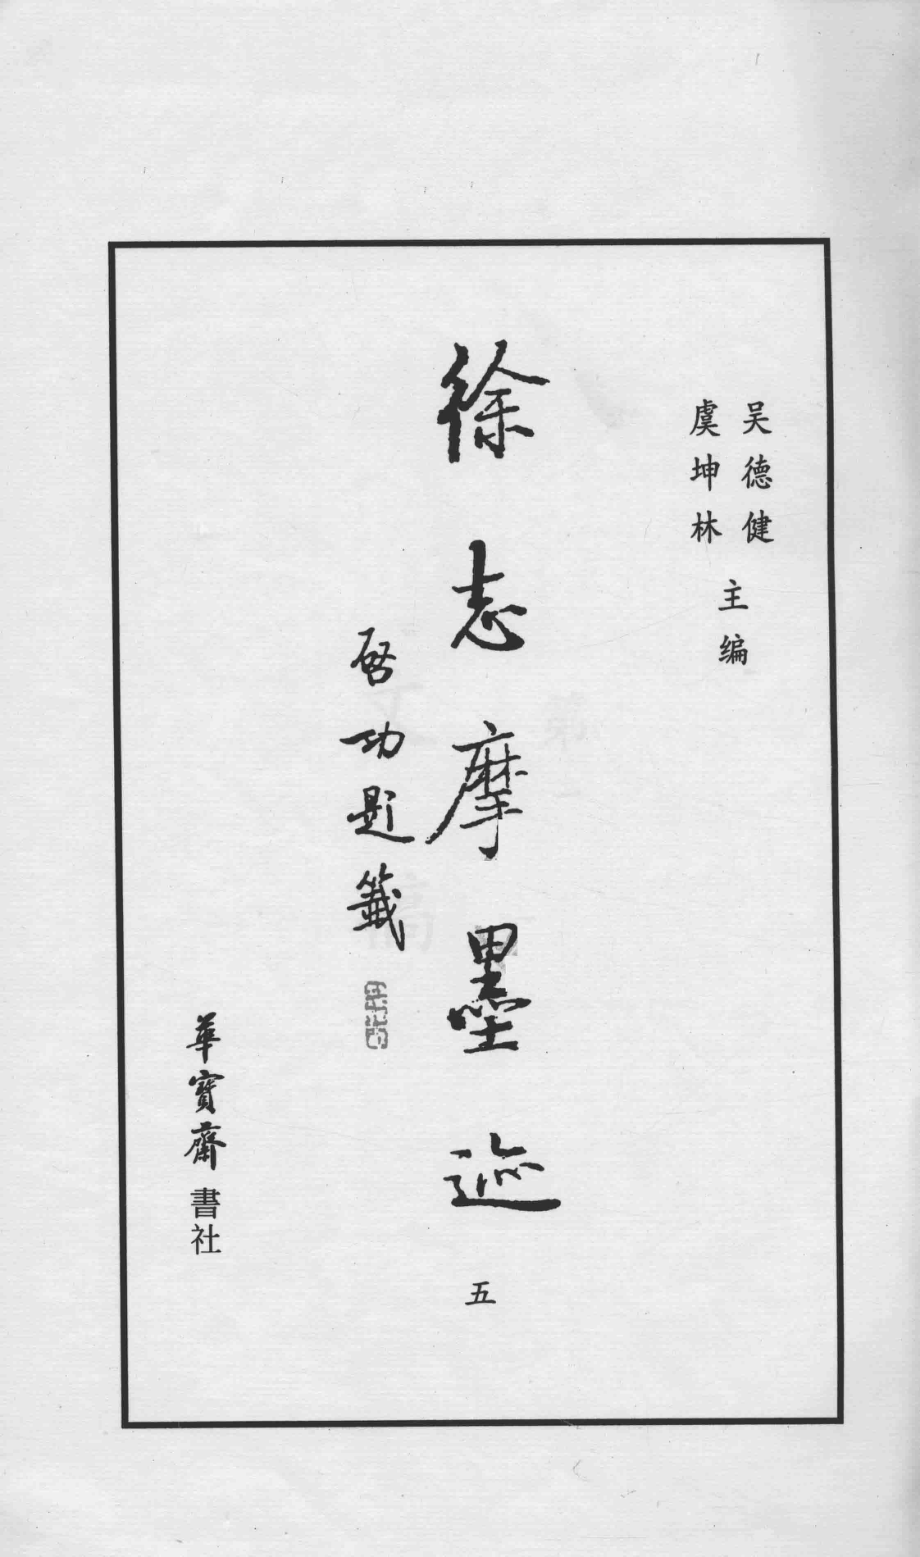 吴德健
虞坤林
主编
徐志摩墨迹
五
启功题签
華寳齋書社